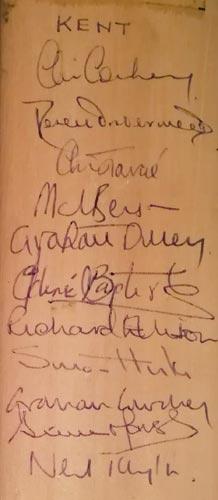 KENT
Chris Cowdrey
Derek Underwood
Chris Tavaré
M Benson
Graham Dilley
Eldine Baptiste
Richard Ellison
Simon Hinks
Graham Cowdrey
Neil Taylor